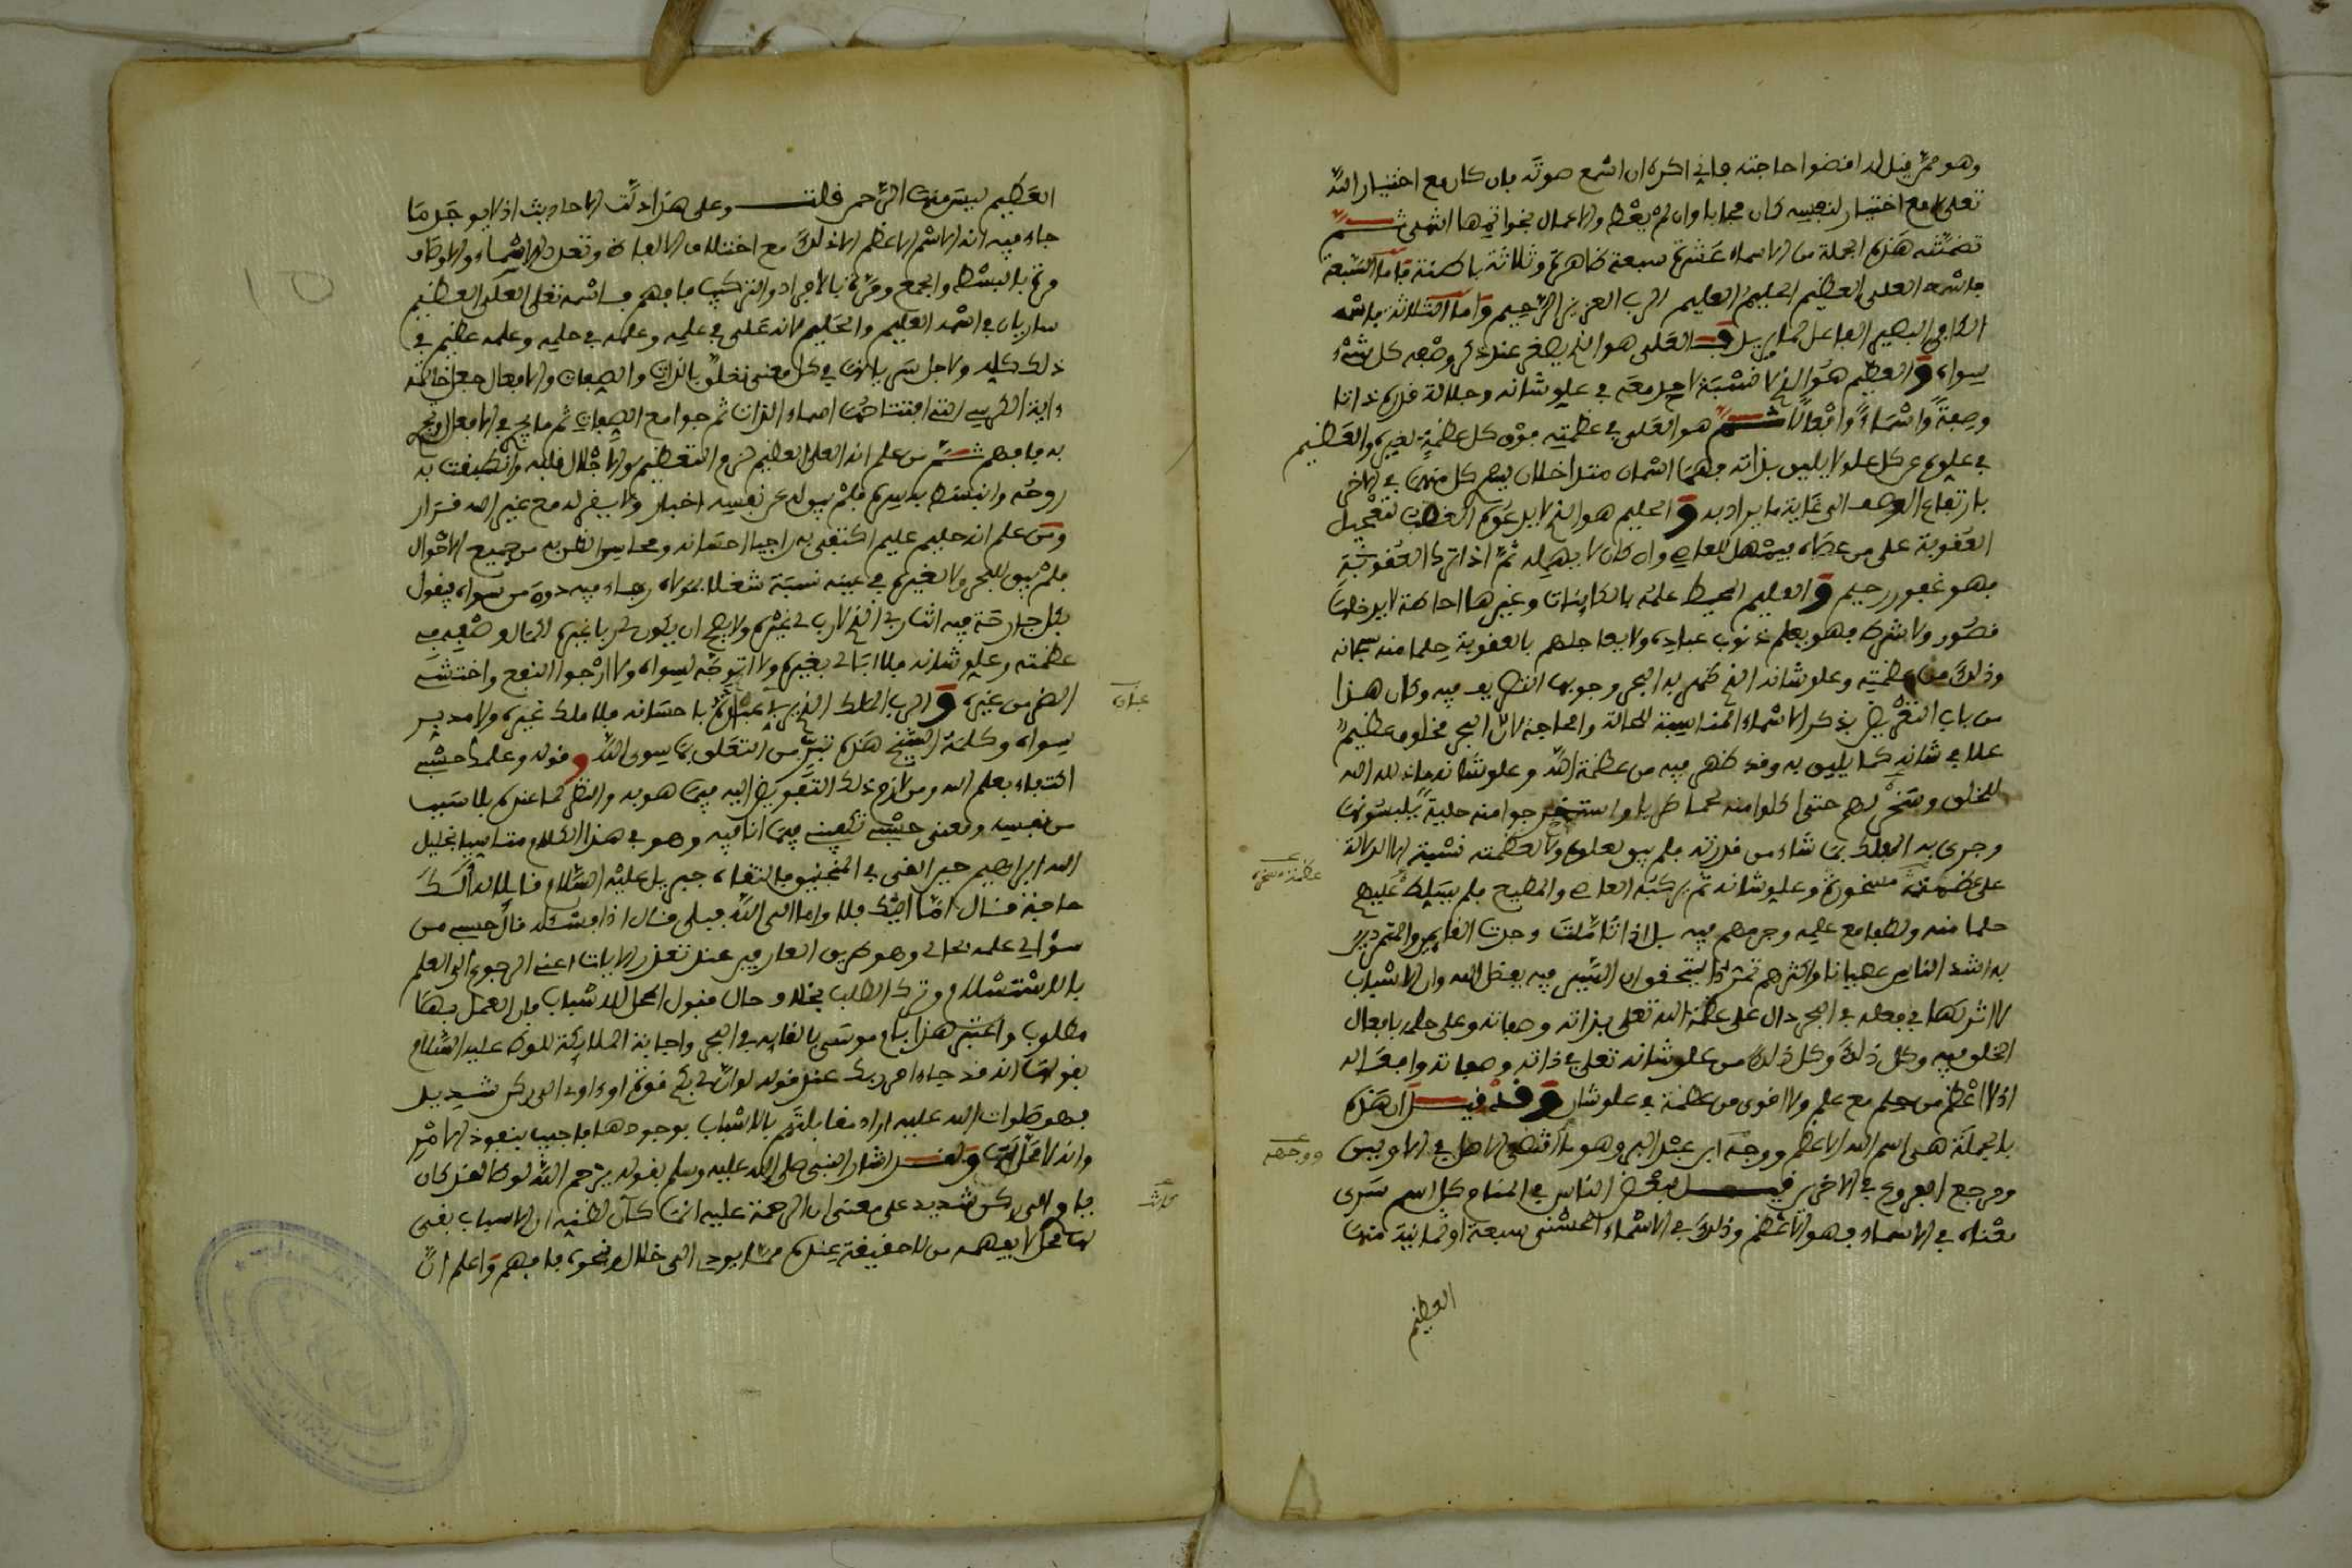 وهو ممن فيل له افضوا حاجته فاني اكره ان اسمع صوته فان كان مع اختيار الله
تعلى لا مع اختيار لنفسه كان مجابا وان لم يعط والاعمال بخواتمها انتهى ثم
تضمنته هذه الجملة من الاسماء عشرة سبعة ظاهرة وثلاثة باطنة فاما السبعة
فاسمه العلي العظيم الحليم العليم الرب العزيز الرحيم واما الثلاثة فاسمه
الكافي البصير الفاعل لما يريد فـالعلي هو الذي يصغر عند ذكر وصفه كل شيء
سواه والعظيم هو الذي لا نسبة لاحد معه في علو شانه وجلالة قدره ذاتا
وصفة واسماء وافعالا ثم هو العلي في عظمته فوق كل عظمة لغيره والعظيم
في علوه عن كل علو لا يليق بذاته فهما اسمان متداخلان يفهم كل منهما في الاخر
بارتفاع الوصف الى غاية ما يراد به والحليم هو الذي لا يدعوه الغضب لتعجيل
العقوبة على من عصاه فيمهل العاصي وان كان لا يهمله ثم اذا ترك العقوبة
فهو غفور رحيم والعليم المحيط علمه بالكاينات وغيرها احاطة لا يدخلها
قصور ولا شرط فهو يعلم ذنوب عباده ولا يعاجلهم بالعقوبة حلما منه سبحانه
وذلك من عظمته وعلو شانه الذي ظهر به البحر وجوبها التصريف فيه وكان هذا
من باب التعريض بذكر الاسماء المناسبة للحالة والحاجة لان البحر مخلوق عظيم
علا في شانه كما يليق به وقد ظهر فيه من عظمة الله وعلو شانه ما ذلله الله
للخلق وسخر لهم حتى اكلوا منه لحما طريا واستخرجوا منه حلية يلبسونها
وجرى به الفلك بما شاء من قدرته فلم يبق لعلوه ولا لعظمته نسبة الا الدلالة
على عظمته مسخرة وعلو شانه ثم يركبه العاصي والمطيع فلم يسلط عليهم
حلما منه ولطفا مع علمه وجرمهم فيه بل اذا تاملت وجدت القايمين والمتمردين
به اشد الناس عصيانا واكثرهم تمردا يتحققون السير فيه بفضل الله وان الاسباب
لا اثر لها في فعله في البحر دال على عظمة الله تعلى بذاته وصفاته وعلى حلمه بافعال
الخلق فيه وكل ذلك وكل ذلك من علو شانه تعلى في ذاته وصفاته وافعاله
اذ لا اعظم من حلم مع علم ولا اقوى من عظمة في علو شان وقد قيل ان هذه
بالجملة هي اسم الله الاعظم ووجه ابن عبد البر وهو ما اقتضى الاصل في الاوليين
ومرجع الفروع في الاخرين قيل لبعض الناس في المنام كل اسم سرى
معناه في الاسماء فهو الاعظم وذلك في الاسماء الحسنى سبعة او ثمانية منها
العظيم
عظمة مسخرة
ووجهه
العظيم ليس منها الرحمن قلت وعلى هذا دلت الاحاديث اذ لا يوجد ما
جاء فيه انه الاسم الاعظم الا ذلك مع اختلاف الالفاظ وتعدد الاسماء والاوصاف
مرة بالبسط والجمع ومرة بالافراد والتركيب فافهم فـاسمه تعلى العلي العظيم
ساريان في اسمه العليم والحليم لانه علي في علمه وعلمه في حلمه وعلمه عظيم في
ذلك كله ولاجل سريانها في كل معنى تعلق بالذات والصفات والافعال جعل خاتمة
ءاية الكرسي التي افتتاحها اسماء الذات ثم جوامع الصفات ثم ما يجري في الافعال ويجري
به فافهم ثم من علم انه العلي العظيم لزم التعظيم والاجلال قلبه وانطبقت به
روحه وانبسط بدسره فلم يبق له عن نفسه اخبار ولا يبقى له مع غير الله قرار
ومن علم انه حليم عليم اكتفى به راجيا احسانه ومحاسن الظن به من جميع الاحوال
فلم يبق للبحر ولا لغيره في عينه نسبة شغلا بمولاه رجاء فيه دون من سواه يقول
بكل جارحة فيه انت ربي الذي لا رب لي غيره ولا يصح ان يكون لي ربا غيره لكمال وصفه في
عظمته وعلو شانه فلا ابالي بغيره ولا اتوجه لسواه ولا ارجو النفع واختشي
الضر من غيره والرب المالك الذي يربي عباده باحسانه فلا مالك غيره ولا مدبر
سواه وكلمة الشيخ هذه تبر من التعلق بما سوى الله وقوله وعلمك حسبي
اكتفاء بعلم الله ومن لازم ذلك التفويض اليه فيما هو به والنظر لما عنده بلا سبب
من نفسه ومعنى حسبي تكفيني فيما انا فيه وهو في هذا الكلام متاسيا بخليل
الله ابراهيم حين القي في المنجنيق بالتقاء جبريل عليه السلام قايلا له الك
حاجة فقال اما اليك فلا واما الى الله فبلى فقال اذا فسله قال حسبي من
سؤالي علمه بحالي وهو طريق العارفين عند تعذر الاسباب اعني الرجوع الى العلم
بالاستسلام وترك الطلب بخلاف حال قبول المحل للاسباب فان العمل بها
مطلوب واعتبر هذا بامر موسى بالقايه في البحر واجابة الملايكة للوط عليه السلام
بقولها انه قد جاء امر ربك عند قوله لو ان لي بكم قوة او ءاوي الى ركن شديد
فهو صلوات الله عليه اراد مقابلتهم بالاسباب بوجودها فاجيب بنفوذ الامر
وانه لا محل لها ولقد اشار النبي صلى الله عليه وسلم بقوله يرحم الله لوطا لقد كان
ياوي الى ركن شديد على معنى ان الرحمة عليه انما كان لظنه ان الاسباب بقي
لها محل لا يفهم من لا حقيقة عنده مما يودي الى ضلال ونحوه فافهم واعلم ان
عباده